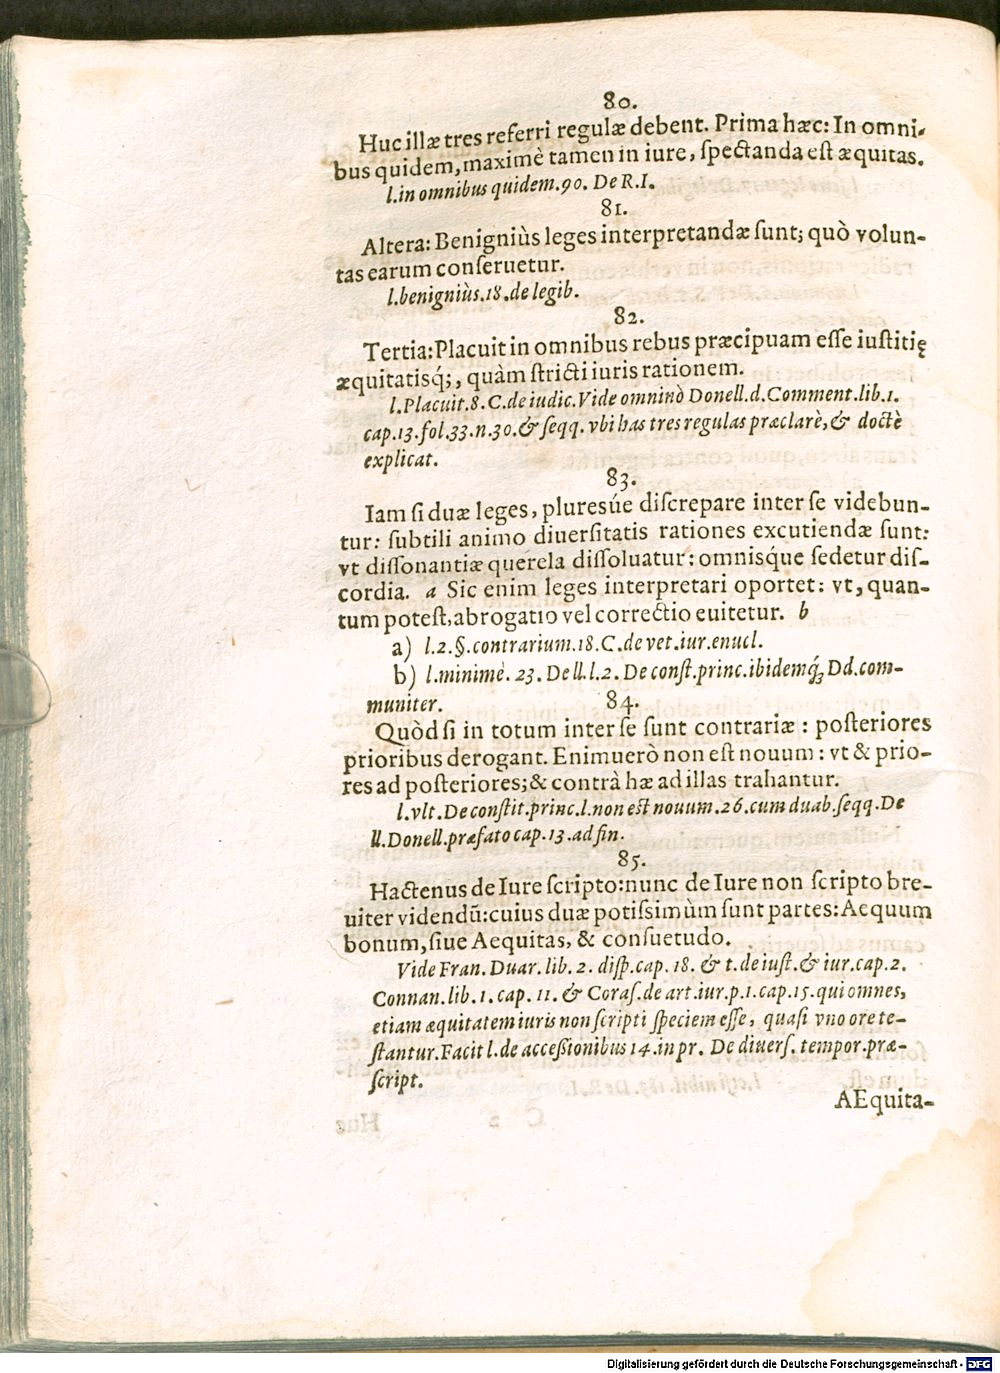 80.
Huc illæ tres referri regulæ debent. Prima hæc: In omni-
bus quidem, maximè tamen in iure, ſpectanda eſt æquitas.
l.in omnibus quidem.90. De R.I.
81.
Altera: Benigniùs leges interpretandæ ſunt; quò volun-
tas earum conſeruetur.
l.benigniùs.18.de legib.
82.
Tertia: Placuit in omnibus rebus præcipuam eſſe iuſtitię
æquitatisq́;, quàm ſtricti iuris rationem.
l.Placuit.8.C.de iudic.Vide omninò Donell.d.Comment.lib.1.
cap.13.fol.33.n.30.& ſeqq. vbi has tres regulas præclarè, & doctè
explicat.
83.
Iam ſi duæ leges, plureśue diſcrepare inter ſe videbun-
tur: ſubtili animo diuerſitatis rationes excutiendæ ſunt:
vt diſſonantiæ querela diſſoluatur: omniśque ſedetur diſ-
cordia. a Sic enim leges interpretari oportet: vt, quan-
tum poteſt, abrogatio vel correctio euitetur. b
a) l.2.§.contrarium.18.C.de vet.iur.enucl.
b) l.minimè. 23. De ll.l.2. De conſt.princ.ibidemq́; Dd.com-
muniter.
84.
Quòd ſi in totum inter ſe ſunt contrariæ : poſteriores
prioribus derogant. Enimuerò non eſt nouum : vt & prio-
res ad poſteriores; & contrà hæ ad illas trahantur.
l.vlt. De conſtit.princ.l.non eſt nouum.26.cum duab.ſeqq.De
ll.Donell.præfato cap.13.ad fin.
85.
Hactenus de Iure ſcripto: nunc de Iure non ſcripto bre-
uiter videndũ: cuius duæ potiſsimùm ſunt partes: Aequum
bonum, ſiue Aequitas, & conſuetudo.
Vide Fran.Duar.lib. 2. diſp.cap. 18. & t.de iuſt.& iur.cap.2.
Connan.lib.1.cap. 11. & Coraſ.de art.iur.p.1.cap.15.qui omnes,
etiam æquitatem iuris non ſcripti ſpeciem eſſe, quaſi vno ore te-
ſtantur.Facit l.de acceßionibus 14.in pr. De diuerſ. tempor.præ-
ſcript.
AEquita-
Digitalisierung gefördert durch die Deutsche Forschungsgemeinschaft - DFG